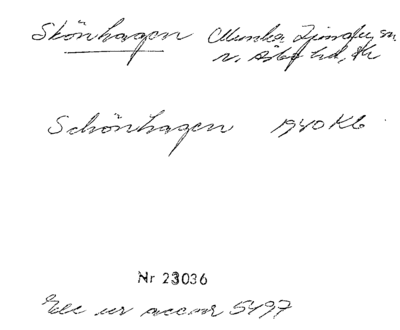 Skönhagen Munka Ljungby sn
n. Åsbo hd, Kr
Schönhagen 1940 Kb
Nr 23036
Exc ur accnr 5497